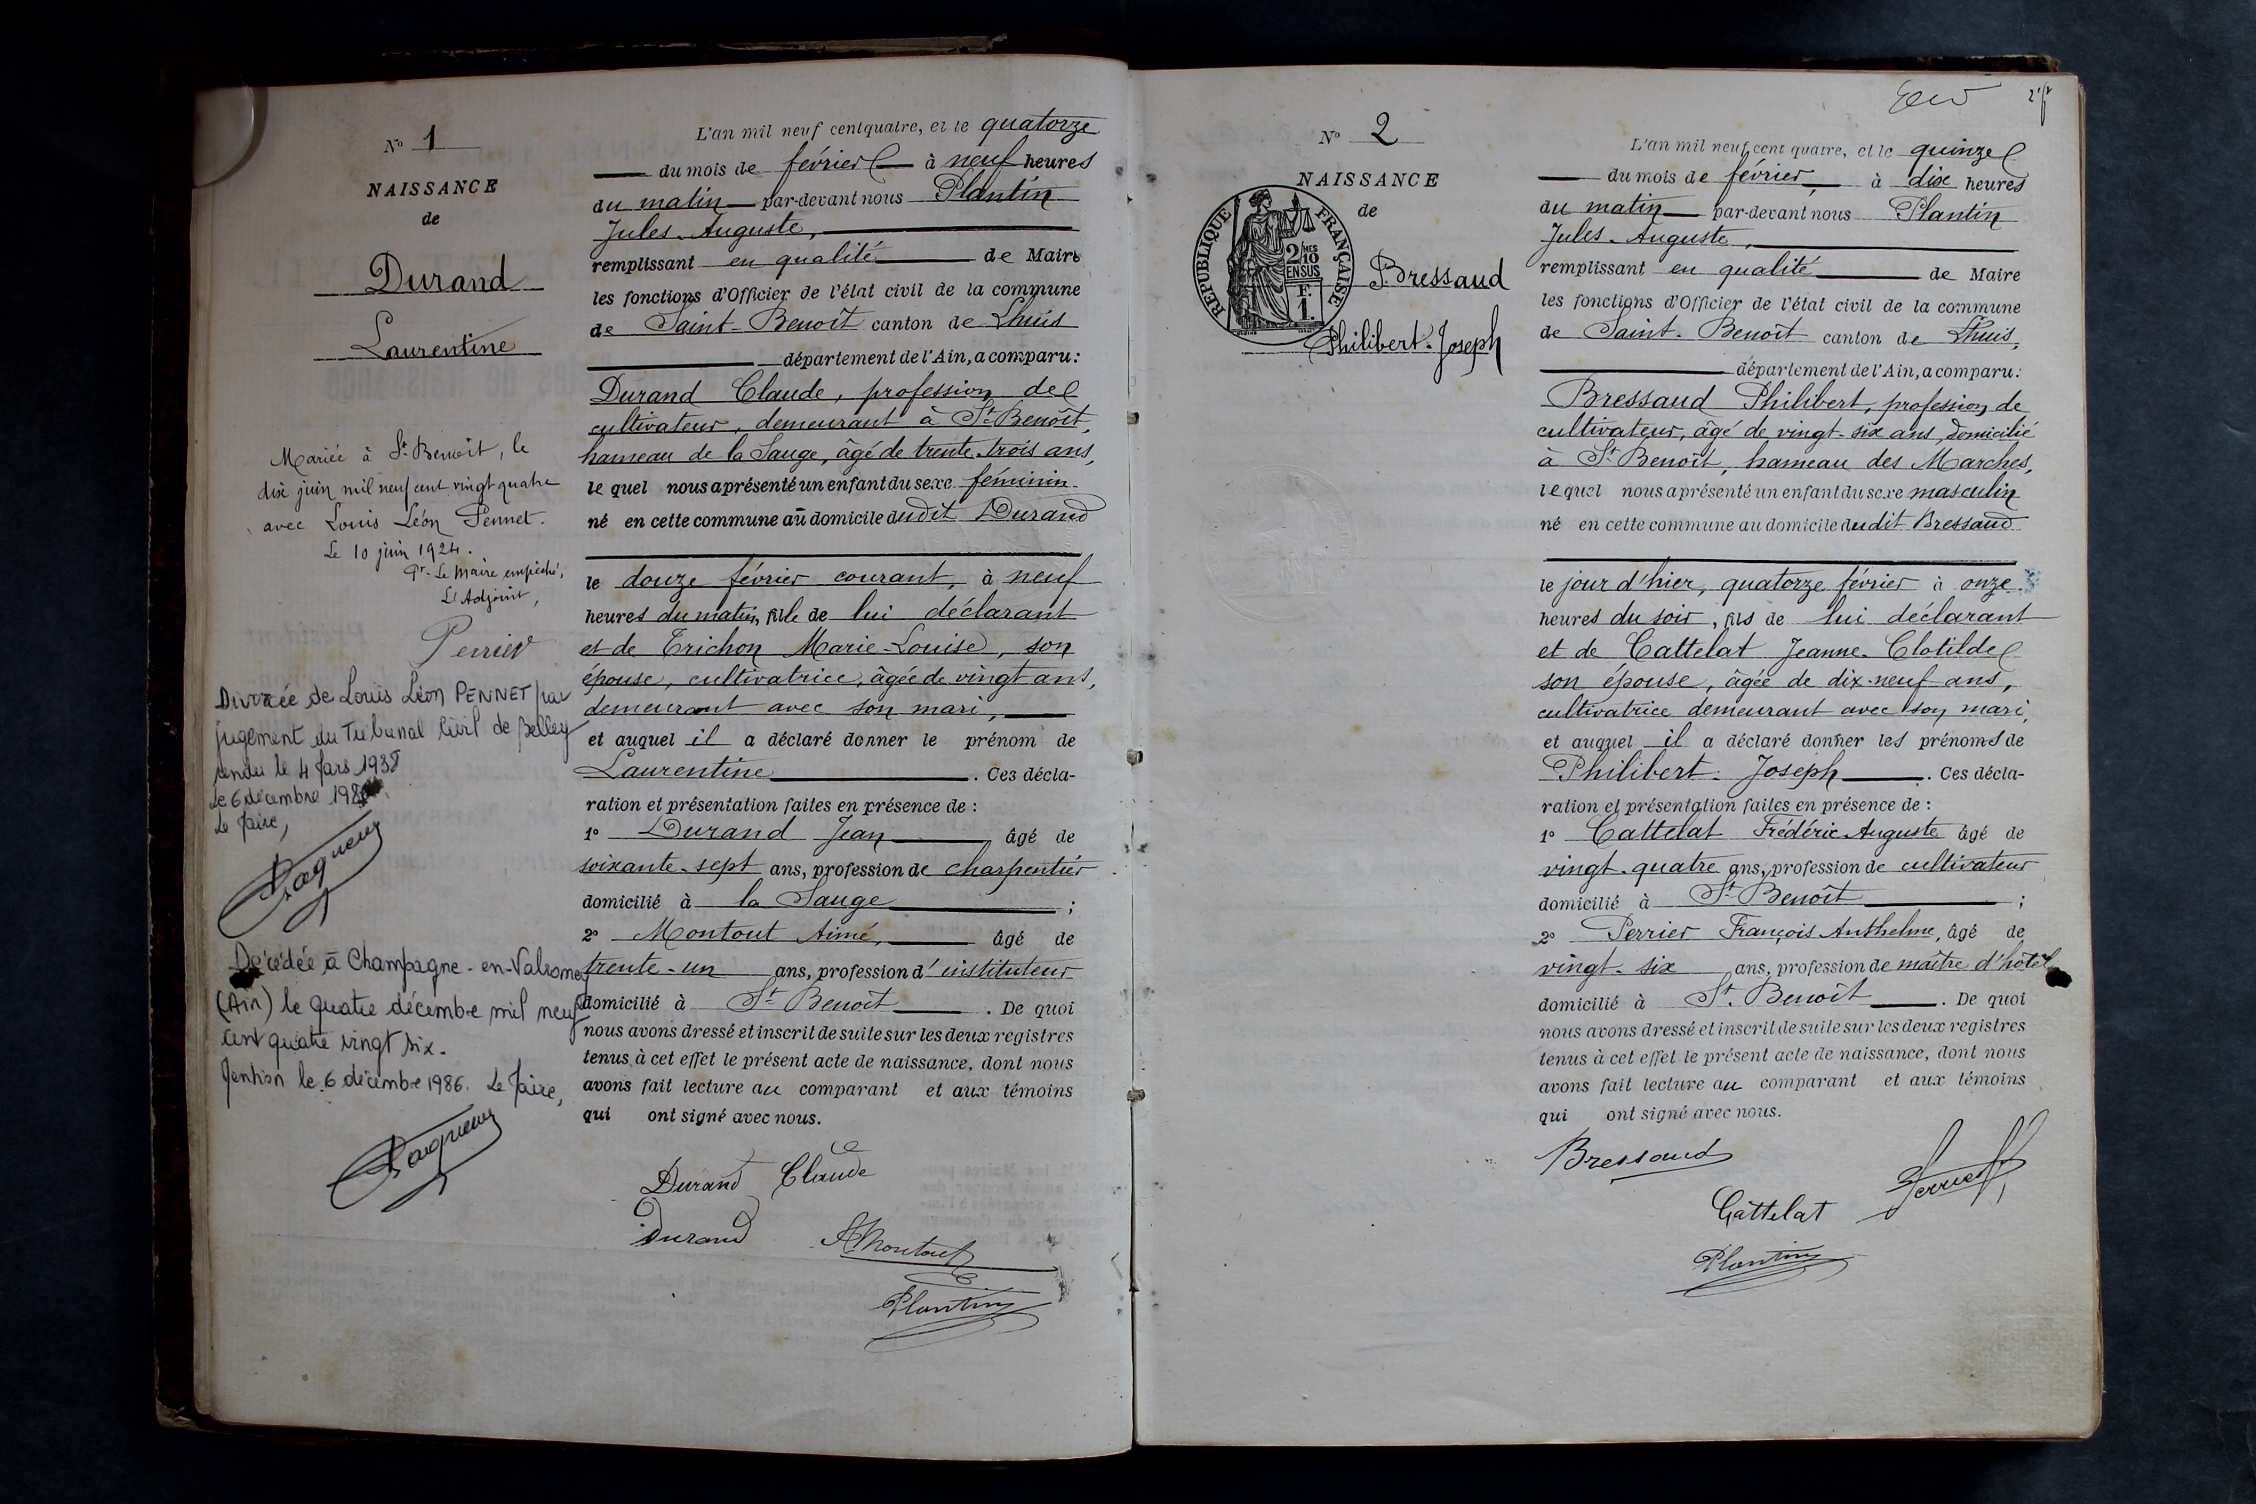 N° 1
NAISSANCE
de
Durand
Laurentine
Mariée à St Benoît, le
dix juin mil neuf cent vingt quatre
avec Louis Léon Pennet.
Le 10 juin 1924.
Pr. Le Maire empêché,
L'Adjoint,
Perrier
Divorcée de Louis Léon PENNET par
jugement du Tribunal Civil de Belley
rendu le 4 Mars 1938
Le 6 décembre
Le Maire,
Décédée à Champagne-en-Valromey
(Ain) le quatre décembre mil neuf
cent quatre vingt six.
Mention le 6 décembre 1986. Le Maire,
L'an mil neuf cent quatre, et le quatorze
du mois de février à neuf heures
du matin par-devant nous Plantin
Jules-Auguste,
remplissant en qualité de Maire
les fonctions d'Officier de l'état civil de la commune
de Saint-Benoît canton de Lhuis
département de l'Ain, a comparu:
Durand Claude, profession de
cultivateur, demeurant à St Benoît,
hameau de la Sauge, âgé de trente-trois ans,
le quel nous a présenté un enfant du sexe féminin
né en cette commune au domicile dudit Durand
le douze février courant, à neuf
heures du matin, fille de lui déclarant
et de Trichon Marie-Louise, son
épouse, cultivatrice, âgée de vingt ans,
demeurant avec son mari,
et auquel il a déclaré donner le prénom de
Laurentine. Ces décla-
ration et présentation faites en présence de :
1° Durand Jean âgé de
soixante-sept ans, profession de charpentier
domicilié à la Sauge ;
2° Montout Aimé, âgé de
trente-un ans, profession d'instituteur
domicilié à St Benoît. De quoi
nous avons dressé et inscrit de suite sur les deux registres
tenus à cet effet le présent acte de naissance, dont nous
avons fait lecture au comparant et aux témoins
qui ont signé avec nous.
Durand Claude
Durand A Montout
Plantin
N° 2
NAISSANCE
de
REPUBLIQUE FRANÇAISE
2/10 MES
EN SUS
F.
1.
Bressaud
Philibert-Joseph
L'an mil neuf cent quatre, et le quinze
du mois de février, à dix heures
du matin par-devant nous Plantin
Jules-Auguste,
remplissant en qualité de Maire
les fonctions d'Officier de l'état civil de la commune
de Saint-Benoît canton de Lhuis,
département de l'Ain, a comparu:
Bressaud Philibert, profession de
cultivateur, âgé de vingt-six ans, domicilié
à St Benoît, hameau des Marches,
lequel nous a présenté un enfant du sexe masculin
né en cette commune au domicile dudit Bressaud
le jour d'hier, quatorze février à onze
heures du soir, fils de lui déclarant
et de Cattelat Jeanne-Clotilde
son épouse, âgée de dix-neuf ans,
cultivatrice demeurant avec son mari,
et auquel il a déclaré donner les prénoms de
Philibert-Joseph. Ces décla-
ration et présentation faites en présence de :
1° Cattelat Frédéric Auguste âgé de
vingt-quatre ans, profession de cultivateur
domicilié à St Benoît ;
2° Perrier François Anthelme, âgé de
vingt-six ans, profession de maître d'hôtel
domicilié à St. Benoît. De quoi
nous avons dressé et inscrit de suite sur les deux registres
tenus à cet effet le présent acte de naissance, dont nous
avons fait lecture au comparant et aux témoins
qui ont signé avec nous.
Bressaud
Perrier
Cattelat
Plantin